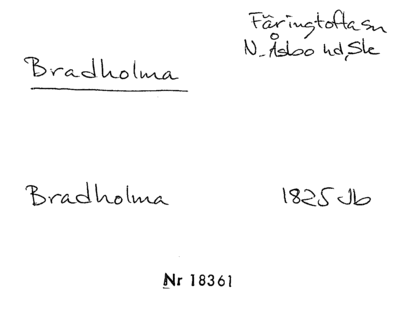 Färingtofta sn
N. Åsbo hd, Sk
Bradholma
Bradholma 1825 Jb
Nr 18361